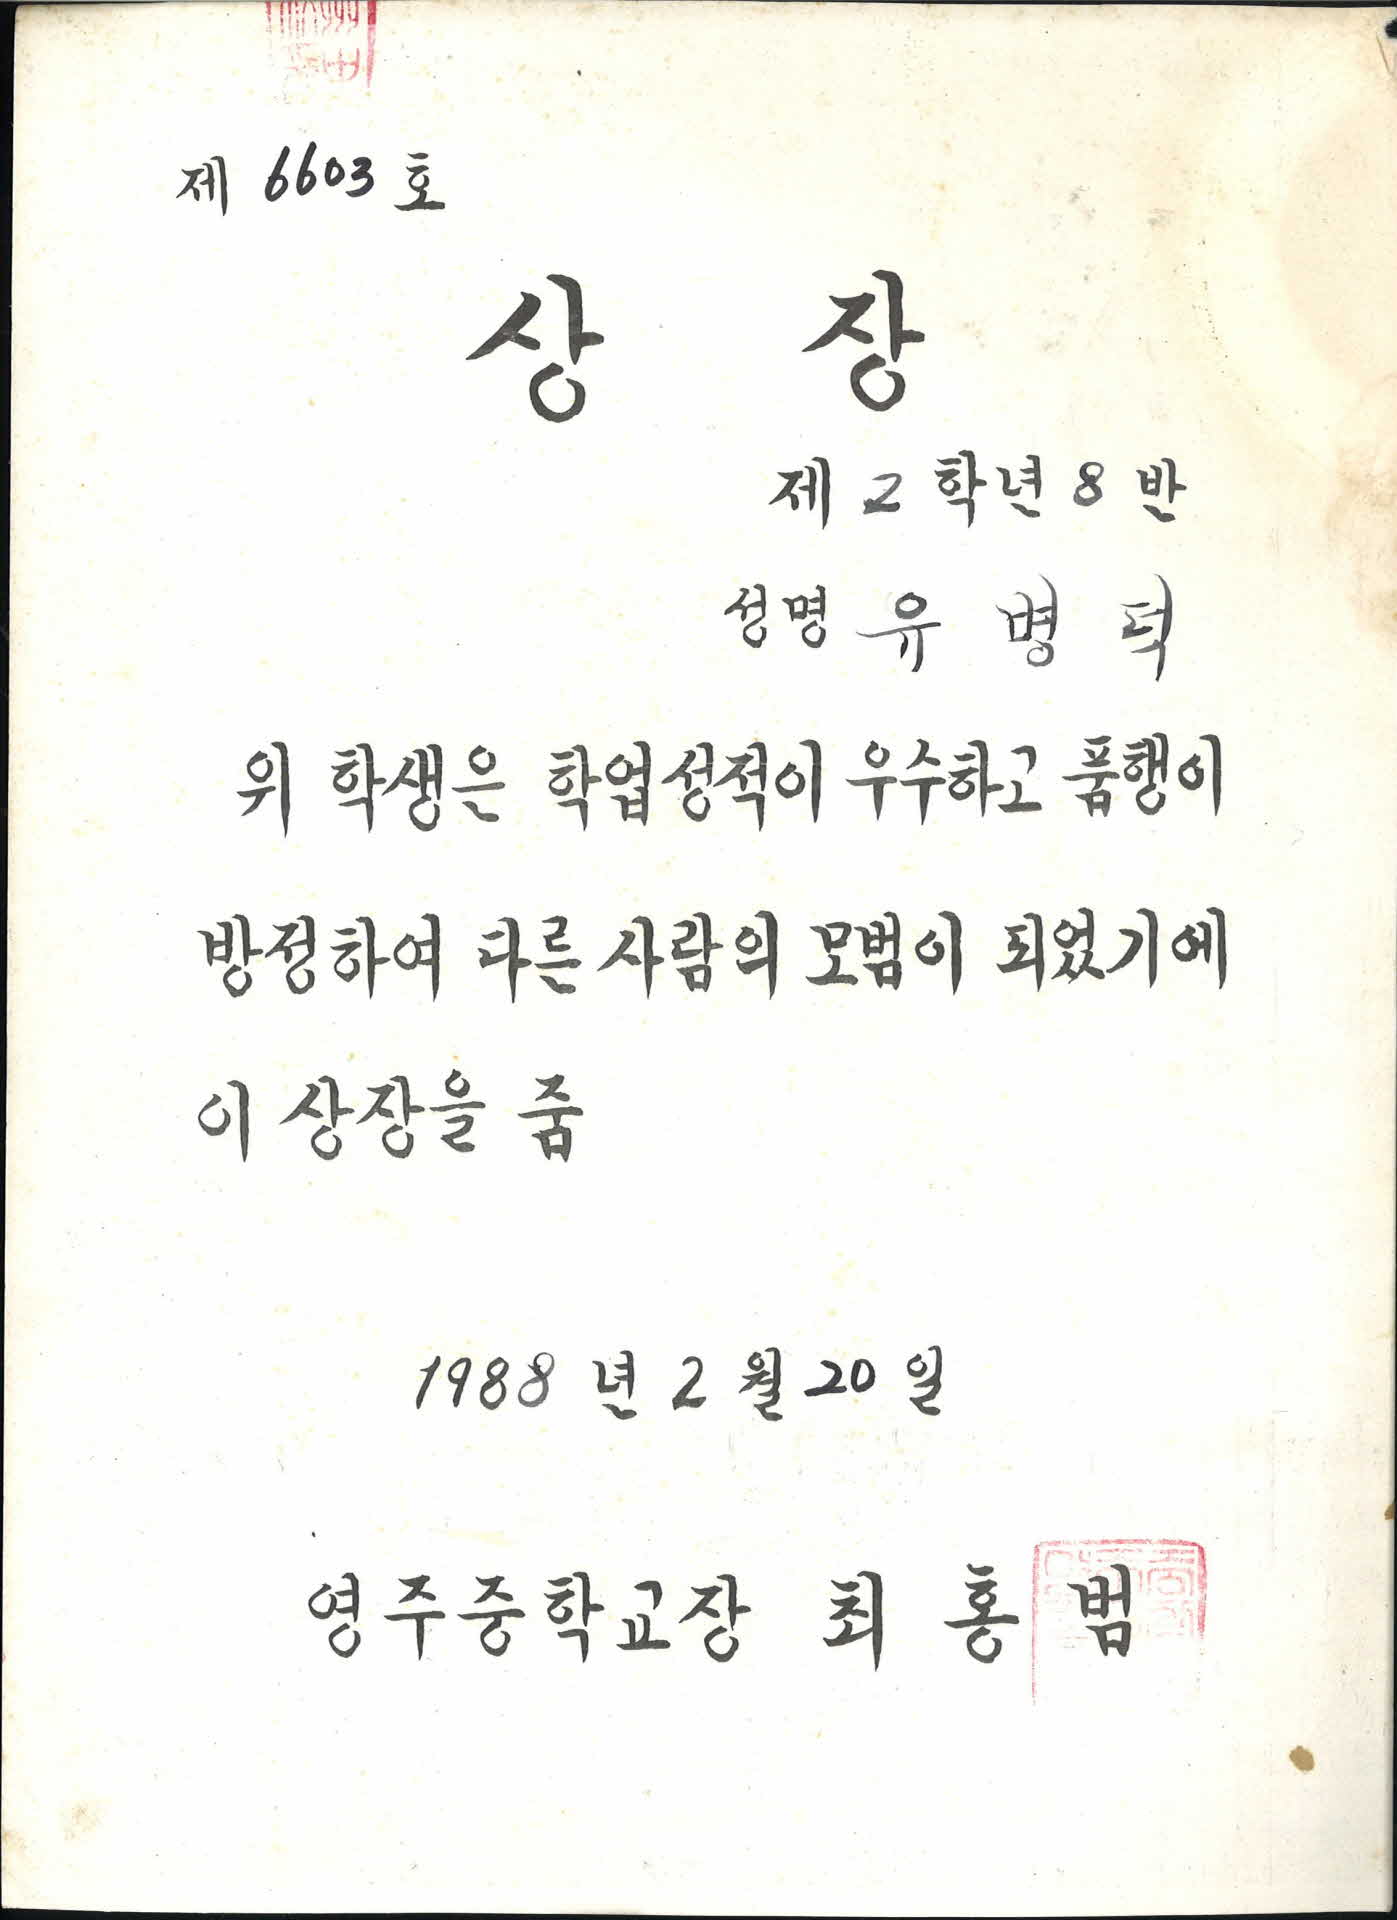 제 6603 호
상 장
제 2 학년 8 반
성명 유 병 덕
위 학생은 학업성적이 우수하고 품행이
방정하여 다른 사람의 모범이 되었기에
이 상장을 줌
1988 년 2 월 20 일
영주중학교장 최 홍 범